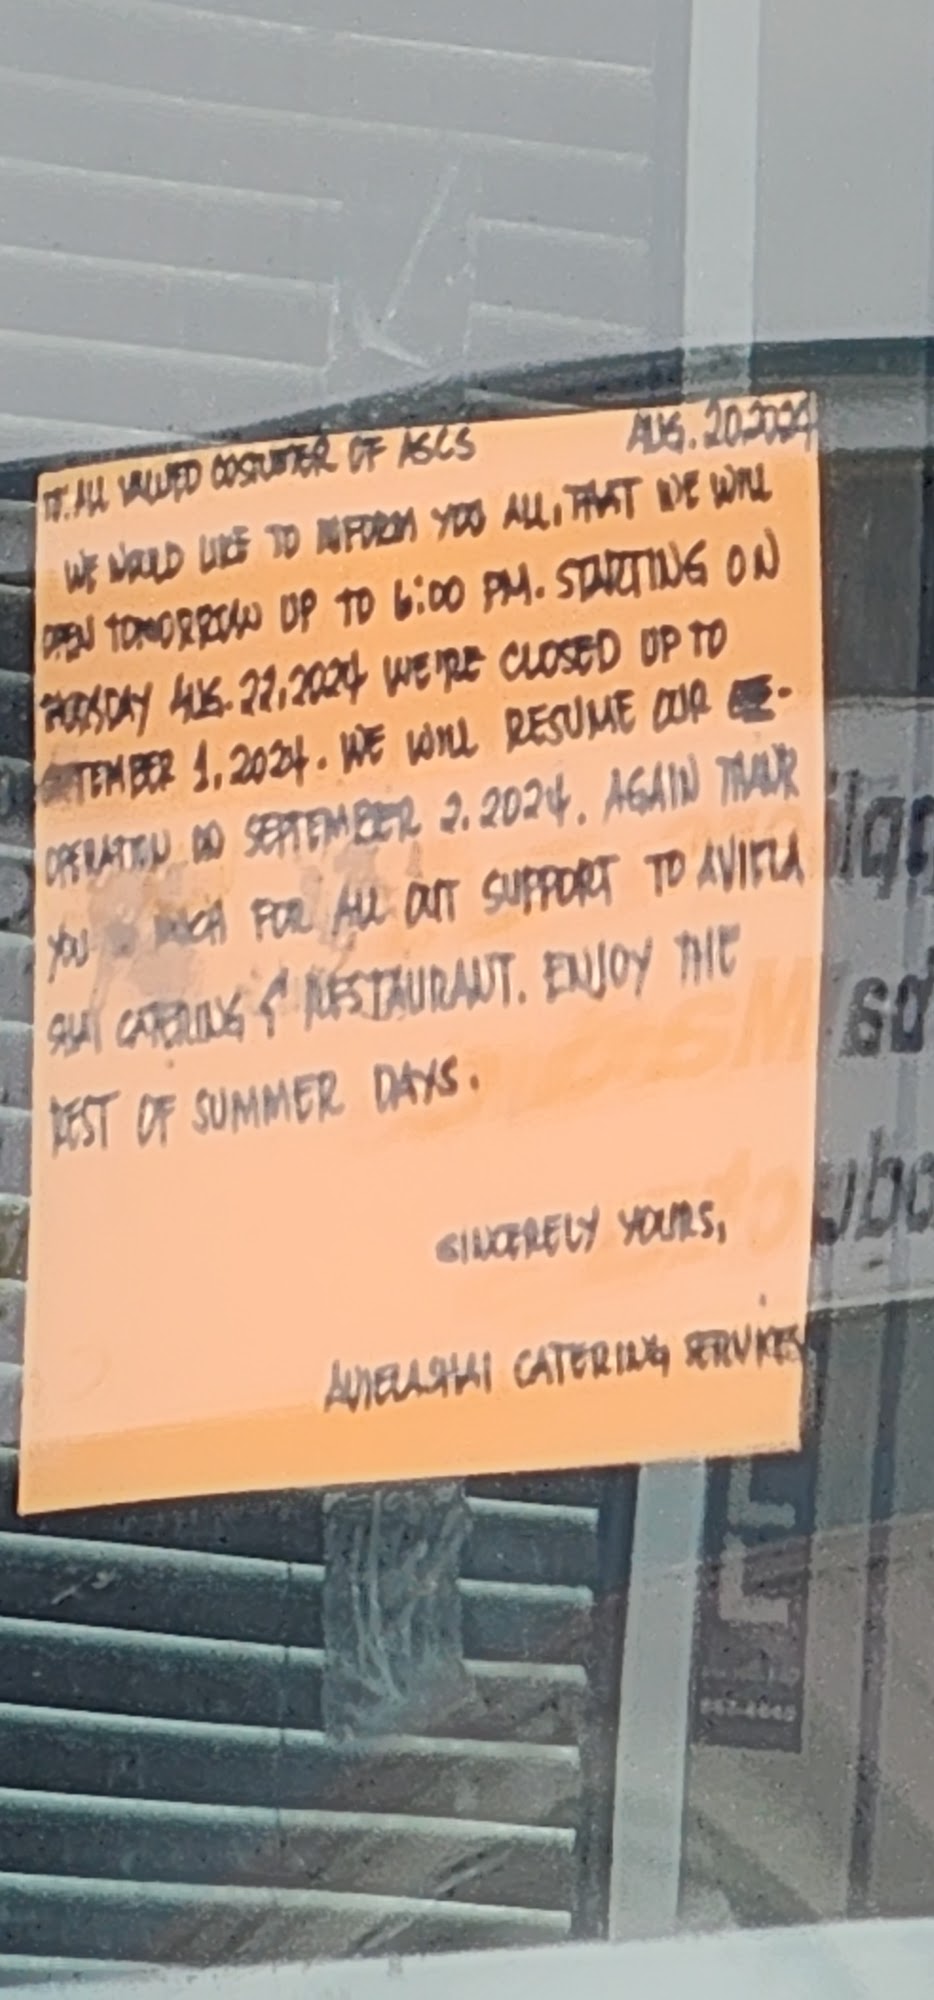 AUG. 20, 2024
TO: ALL VALUED COSTUMER OF ASCS
WE WOULD LIKE TO INFORM YOU ALL, THAT WE WILL
OPEN TOMORROW UP TO 6:00 PM. STARTING ON
THURSDAY AUG. 22, 2024 WE'RE CLOSED UP TO
TEMBER 1, 2024. WE WILL RESUME OUR
OPERATION ON SEPTEMBER 2, 2024. AGAIN THANK
YOU MUCH FOR ALL OUT SUPPORT TO AVIELA
SHAI CATERING & RESTAURANT. ENJOY THE
REST OF SUMMER DAYS.
SINCERELY YOURS,
AVIELASHAI CATERING SERVICES